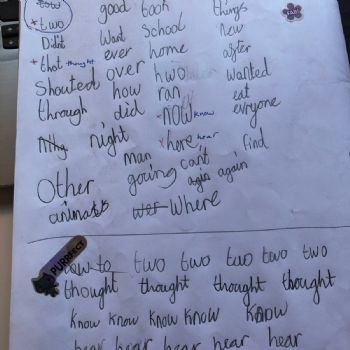 two good took things
Didn't want school new
that thought ever home after
Shouted over hwo wanted
through did how ran eat
NOW know evryone
night here hear find
man can't
Other going again again
animals wer Where
PURRFECT
two two two two
thought thought thought thought
know know know know know
hear hear hear hear hear